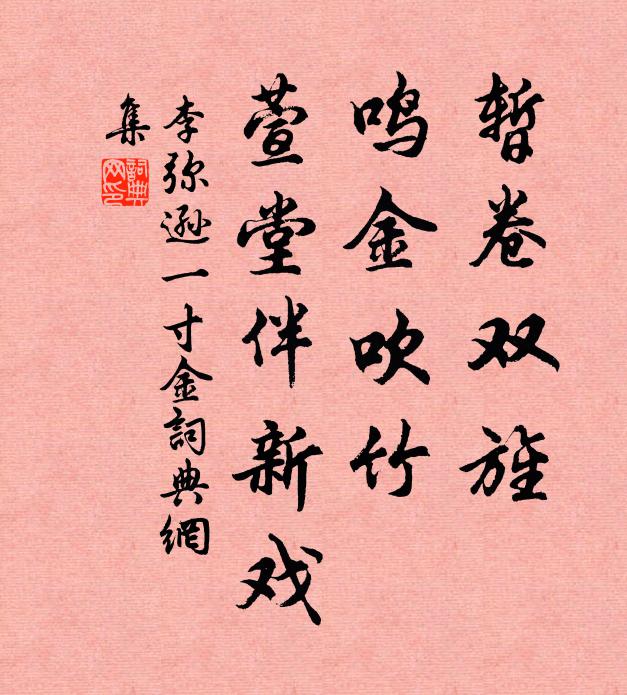 暂卷双旌
鸣金吹竹
萱堂伴新戏
李弥逊一寸金詞典網
集
詞典网印